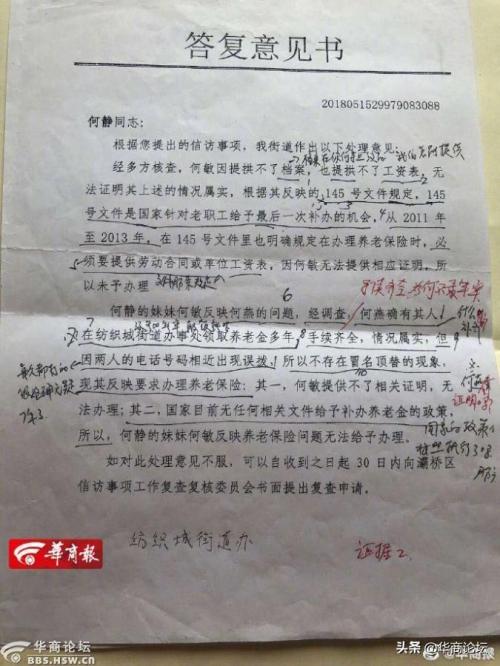 答复意见书
2018051529979083088
何静同志：
根据您提出的信访事项，我街道作出以下处理意见：
经多方核查，何敏因提拱不了档案，也提拱不了工资表，无
法证明其上述的情况属实，根据其反映的145号文件规定，145
号文件是国家针对老职工给予最后一次补办的机会，从2011年
至2013年，在145号文件里也明确规定在办理养老保险时，必
须要提供劳动合同或单位工资表，因何敏无法提供相应证明，所
以未予办理
何静的妹妹何敏反映何燕的问题，经调查，何燕确有其人，
在纺织城街道办事处领取养老金多年，手续齐全，情况属实，但
因两人的电话号码相近出现误拨，所以不存在冒名顶替的现象，
现其反映要求办理养老保险：其一，何敏提供不了相关证明，无
法办理；其二，国家目前无任何相关文件给予补办养老金的政策，
所以，何静的妹妹何敏反映养老保险问题无法给予办理。
如对此处理意见不服，可以自收到之日起30日内向灞桥区
信访事项工作复查复核委员会书面提出复查申请。
纺织城街道办
证据2
华商报
华商论坛
BBS.HSW.CN
头条 @华商论坛